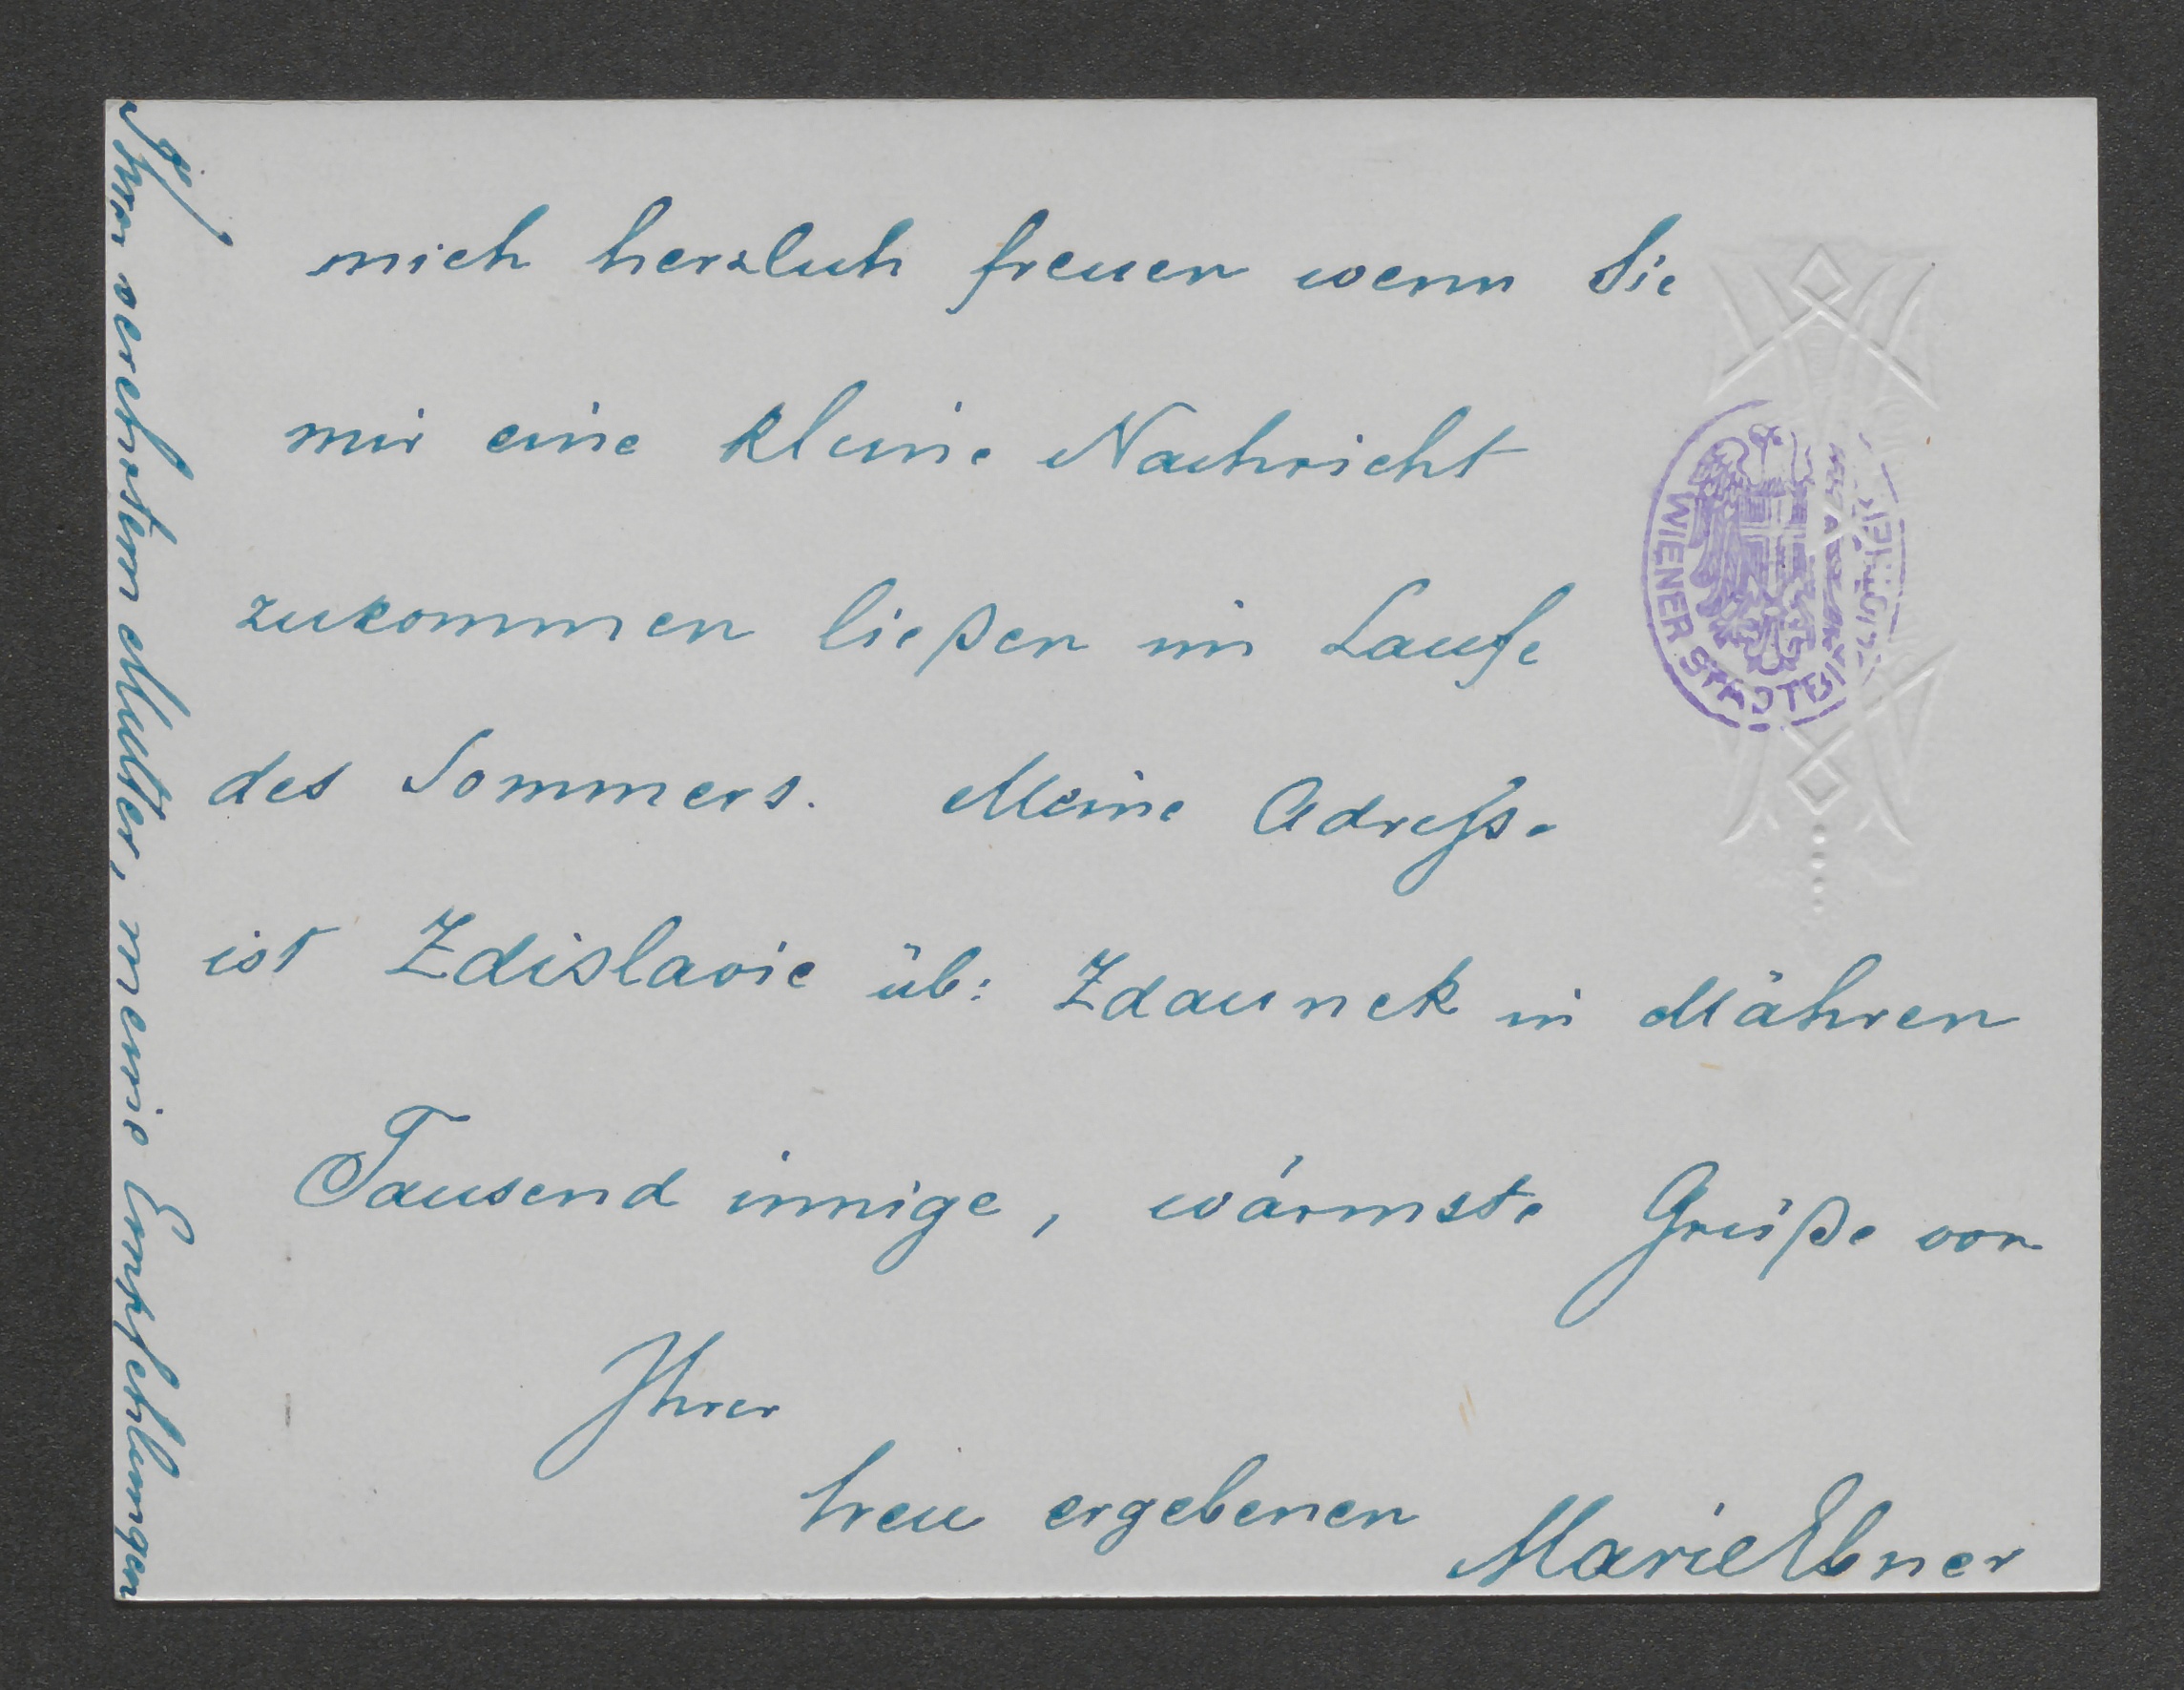 mich herzlich freuen wenn Sie
mir eine kleine Nachricht
zukommen ließen im Laufe
des Sommers. Meine Adresse
ist Zdislavic üb: Zdaunek in Mähren
Tausend innige, wärmste Grüße von
Ihrer
treu ergebenen Marie Ebner
Ihrer verehrten Mutter, meine Empfehlungen
WIENER STADTBIBLIOTHEK